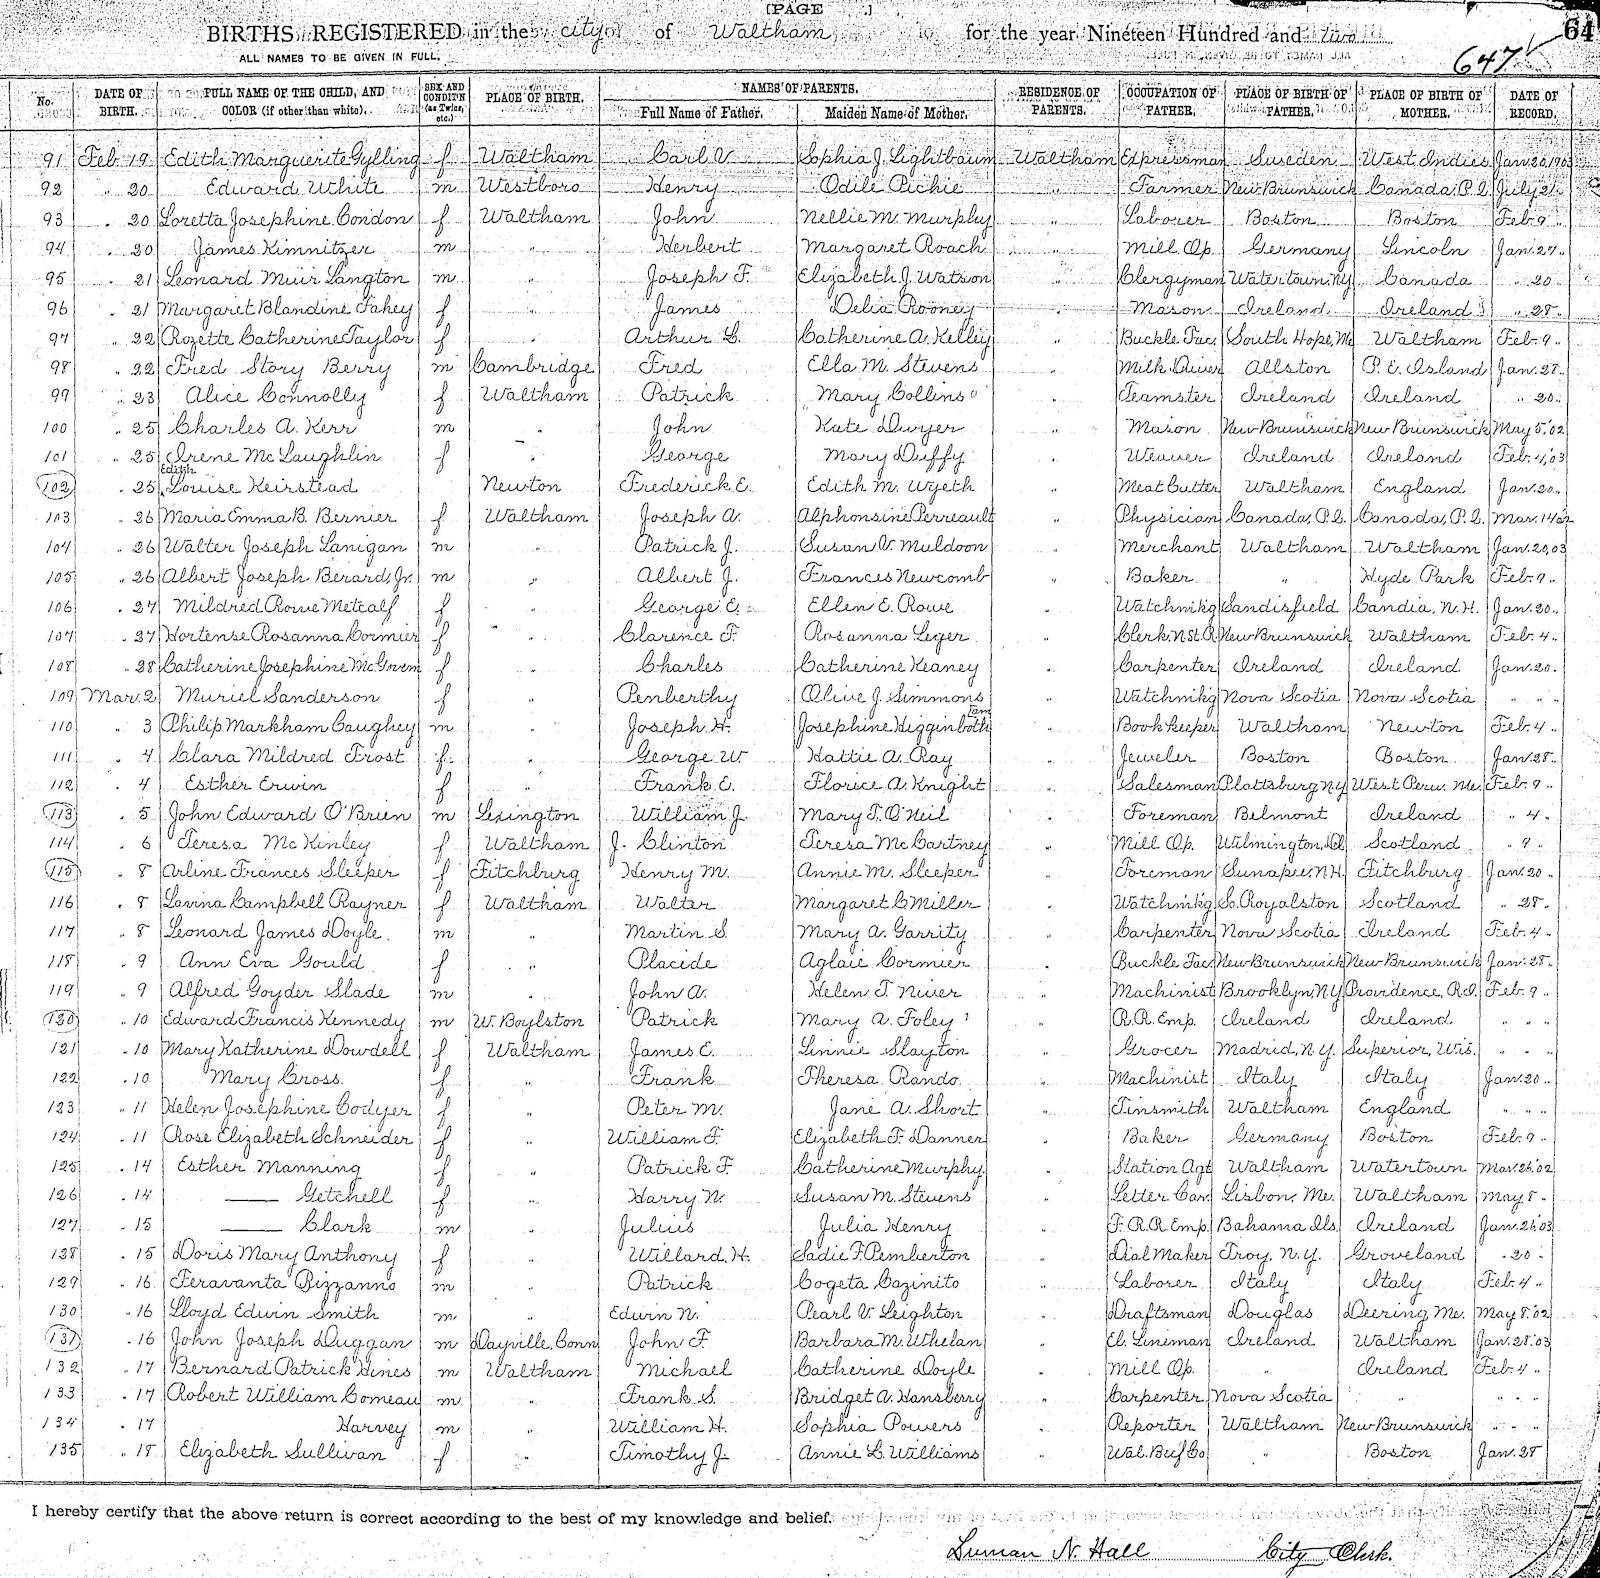 [PAGE ]
BIRTHS REGISTERED in the city of Waltham for the year Nineteen Hundred and two 64
ALL NAMES TO BE GIVEN IN FULL. 647
No. DATE OF BIRTH. FULL NAME OF THE CHILD, AND COLOR (if other than white). SEX AND CONDIT'N (as Twins, etc.) PLACE OF BIRTH. NAMES OF PARENTS. Full Name of Father. Maiden Name of Mother. RESIDENCE OF PARENTS. OCCUPATION OF FATHER. PLACE OF BIRTH OF FATHER. PLACE OF BIRTH OF MOTHER. DATE OF RECORD.
91 Feb. 19 Edith Marguerite Gylling f Waltham Carl V. Sophia J. Lightbaum Waltham Expressman Sweden West Indies Jan. 20, 1903
92 " 20 Edward White m Westboro Henry Odile Pichie " Farmer New Brunswick Canada, P.Q. July 21
93 " 20 Loretta Josephine Condon f Waltham John Nellie M. Murphy " Laborer Boston Boston Feb. 9 "
94 " 20 James Kimnitzer m " Herbert Margaret Roach " Mill Op. Germany Lincoln Jan. 27 "
95 " 21 Leonard Muir Langton m " Joseph F. Elizabeth J. Watson " Clergyman Watertown, N.Y. Canada " 20 "
96 " 21 Margaret Blandine Fahey f " James Delia Rooney " Mason Ireland Ireland " 28 "
97 " 22 Rozette Catherine Taylor f " Arthur L. Catherine A. Kelley " Buckle Fac. South Hope, Me Waltham Feb. 9 "
98 " 22 Fred Story Berry m Cambridge Fred Ella M. Stevens " Milk Driver Allston P. E. Island Jan. 28 "
99 " 23 Alice Connolly f Waltham Patrick Mary Collins " Teamster Ireland Ireland " 20 "
100 " 25 Charles A. Kerr m " John Kate Dwyer " Mason New Brunswick New Brunswick May 5, '02
101 " 25 Irene McLaughlin f " George Mary Duffy " Weaver Ireland Ireland Feb. 4, '03
102 " 25 Edith Louise Keirstead Newton Frederick E. Edith M. Wyeth " Meat Cutter Waltham England Jan. 20 "
103 " 26 Maria Emma B. Bernier f Waltham Joseph A. Alphonsine Perreault " Physician Canada, P.Q. Canada, P.Q. Mar. 14 '02
104 " 26 Walter Joseph Lanigan m " Patrick J. Susan V. Muldoon " Merchant Waltham Waltham Jan. 20, 03
105 " 26 Albert Joseph Berard, Jr. m " Albert J. Frances Newcomb " Baker " Hyde Park Feb. 9 "
106 " 27 Mildred Rowe Metcalf f " George E. Ellen E. Rowe " Watchmkg Sandisfield Candia, N.H. Jan. 20 "
107 " 27 Hortense Rosanna Cormier f " Clarence F. Rosanna Leger " Clerk, N St. R. New Brunswick Waltham Feb. 4 "
108 " 28 Catherine Josephine McGivern f " Charles Catherine Keaney " Carpenter Ireland Ireland Jan. 20 "
109 Mar. 2 Muriel Sanderson f " Pemberthy Olive J. Simmons " Watchmkg Nova Scotia Nova Scotia " " "
110 3 Philip Markham Caughey m " Joseph H. Josephine Higginbotham " Bookkeeper Waltham Newton Feb. 4 "
111 " 4 Clara Mildred Frost f " George W. Hattie A. Ray " Jeweler Boston Boston Jan. 28 "
112 " 4 Esther Erwin f " Frank E. Florice A. Knight " Salesman Plattsburg N.Y West Peru, Me. Feb. 9 "
113 " 5 John Edward O'Brien m Lexington William J. Mary T. O'Neil " Foreman Belmont Ireland " 4 "
114 " 6 Teresa McKinley f Waltham J. Clinton Teresa McCartney " Mill Op. Wilmington, Del Scotland " 9 "
115 " 8 Arline Frances Sleeper f Fitchburg Henry M. Annie M. Sleeper " Foreman Sunapee, N.H. Fitchburg Jan. 20 "
116 " 8 Lavina Campbell Rayner f Waltham Walter Margaret C Miller " Watchmkg So. Royalston Scotland " 28 "
117 " 8 Leonard James Doyle m " Martin S. Mary A. Garrity " Carpenter Nova Scotia Ireland Feb. 4 "
118 " 9 Ann Eva Gould f " Placide Aglaie Cormier " Buckle Fac. New Brunswick New Brunswick Jan. 28 "
119 " 9 Alfred Goyder Slade m " John A. Helen T. Niver " Machinist Brooklyn, N.Y. Providence, R.I. Feb. 9 "
120 " 10 Edward Francis Kennedy m W. Boylston Patrick Mary A. Foley " R.R. Emp. Ireland Ireland " " "
121 " 10 Mary Katherine Dowdell f Waltham James E. Linnie Slayton " Grocer Madrid, N.Y. Superior, Wis. " " "
122 " 10 Mary Cross f " Frank Theresa Rando " Machinist Italy Italy Jan. 20 "
123 " 11 Helen Josephine Codyer f " Peter M. Jane A. Short " Tinsmith Waltham England " " "
124 " 11 Rose Elizabeth Schneider f " William F. Elizabeth F. Danner " Baker Germany Boston Feb. 9 "
125 " 14 Esther Manning f " Patrick F. Catherine Murphy " Station Agt Waltham Watertown Mar. 26, '02
126 " 14 —— Getchell f " Harry N. Susan M. Stevens " Letter Car. Lisbon, Me. Waltham May 8 "
127 " 15 —— Clark m " Julius Julia Henry " F. R.R. Emp. Bahama Ils. Ireland Jan. 26, '03
128 " 15 Doris Mary Anthony f " Willard H. Sadie F. Pemberton " Dial Maker Troy, N.Y. Groveland " 20 "
129 " 16 Feravanta Pizzanno m " Patrick Cogeta Cozinito " Laborer Italy Italy Feb. 4 "
130 " 16 Lloyd Edwin Smith m " Edwin N. Pearl V. Leighton " Draftsman Douglas Deering, Me. May 8, '02
131 " 16 John Joseph Duggan m Dayville, Conn John F. Barbara M. Whelan " El. Lineman Ireland Waltham Jan. 28, '03
132 " 17 Bernard Patrick Hines m Waltham Michael Catherine Doyle " Mill Op. " Ireland Feb. 4 "
133 " 17 Robert William Comeau m " Frank S. Bridget A. Hansberry " Carpenter Nova Scotia " " " "
134 " 17 Harvey m " William H. Sophia Powers " Reporter Waltham New Brunswick " " "
135 " 18 Elizabeth Sullivan f " Timothy J. Annie L. Williams " Wal. Buf Co " Boston Jan. 28
I hereby certify that the above return is correct according to the best of my knowledge and belief.
Luman N. Hall City Clerk.